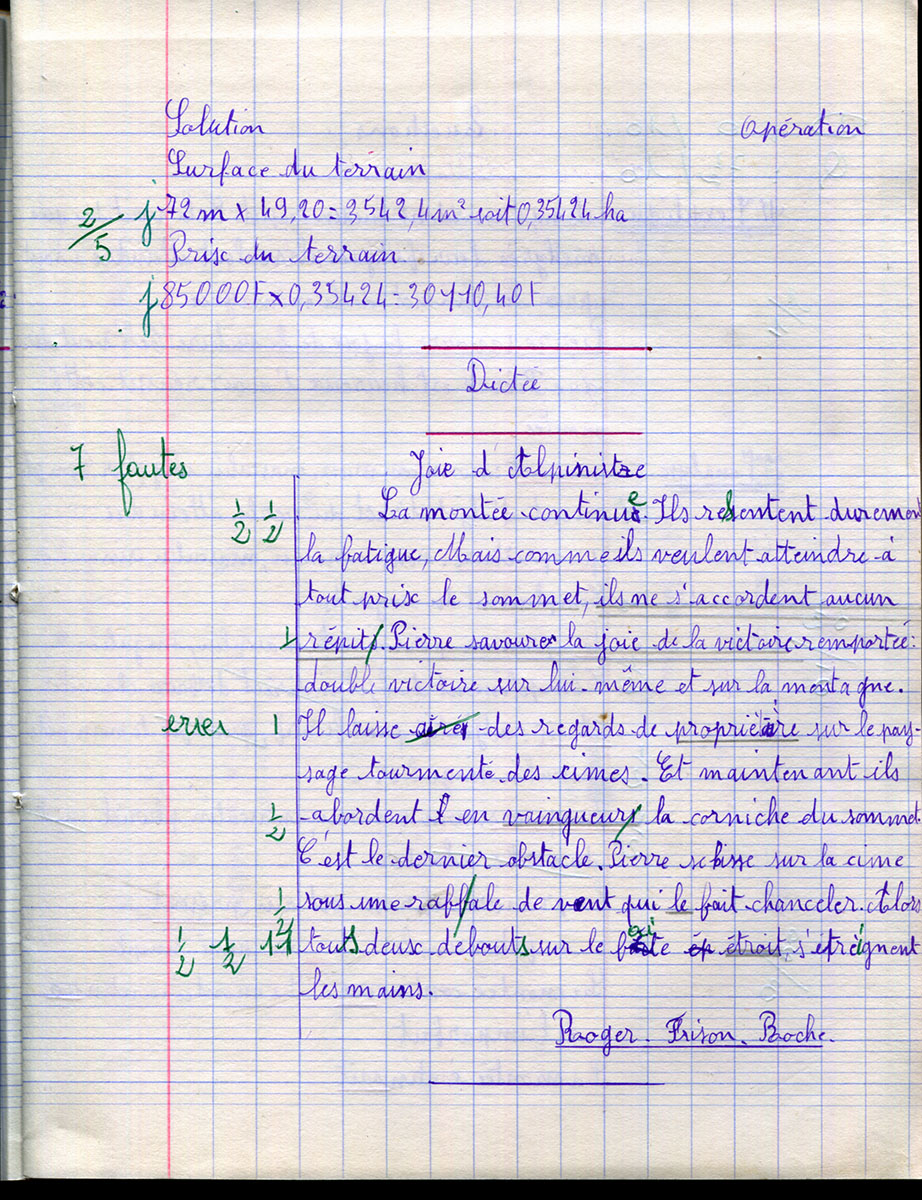 Solution Opération
Surface du terrain
2/5 j 72m x 49,20 = 3542,4m² soit 0,35424 ha
Prix du terrain
j 85000F x 0,35424 = 30110,40F
Dictée
7 fautes Joie d'Alpiniste
1/2 1/2 La montée continue. Ils ressentent durement
la fatigue, Mais comme ils veulent atteindre à
tout prix le sommet, ils ne s'accordent aucun
1 répits. Pierre savoure la joie de la victoire remportée.
double victoire sur lui-même et sur la montagne.
errer 1 Il laisse des regards de propriétaire sur le pay-
sage tourmenté des cimes. Et maintenant ils
1/2 abordent en vainqueurs la corniche du sommet.
C'est le dernier obstacle. Pierre se hisse sur la cime
1/2 sous une raffale de vent qui le fait chanceler. Alors
1/2 1/2 1 1 touts deux debouts sur le faite étroit, s'etreignent
les mains.
Roger. Frison. Roche.